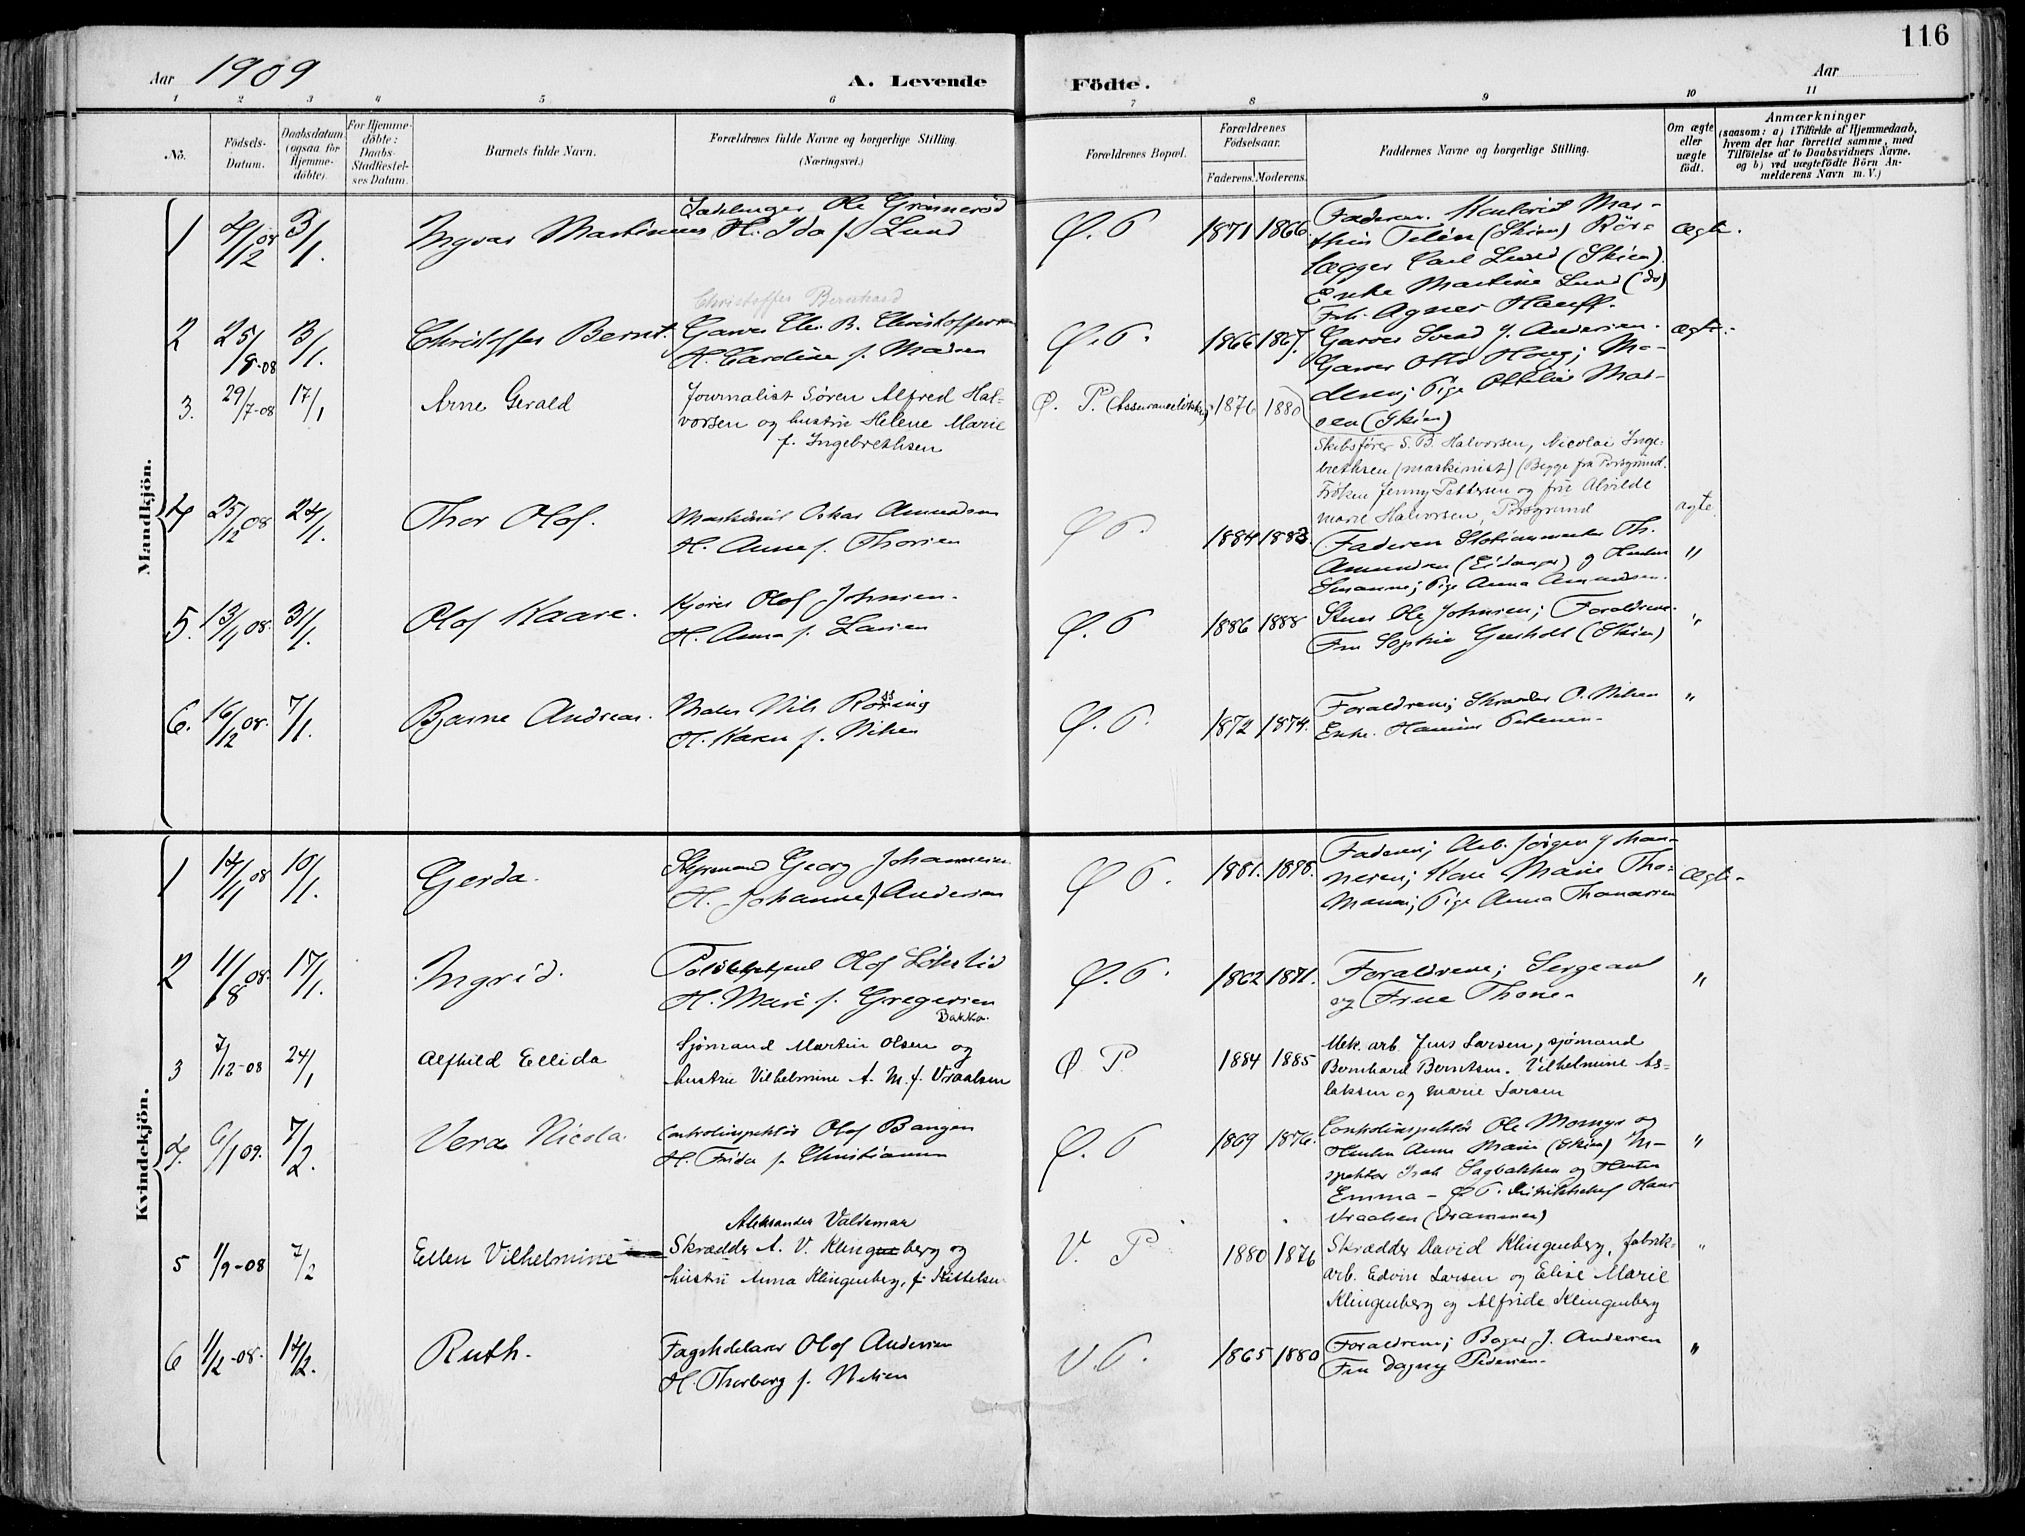 116
Aar 1909
A. Levende
Födte.
Aar
1 2 3 4 5 6 7 8 9 10 11
No.
Födsels-
Datum.
Daabsdatum
(ogsaa for
Hjemme-
döbte).
For Hjemme-
döbte:
Daabs-
Stadfæstel-
ses Datum.
Barnets fulde Navn.
Forældrenes fulde Navne og borgerlige Stilling
(Næringsvei.)
Forældrenes Bopæl.
Forældrenes
Födselsaar.
Faderens. Moderens.
Faddernes Navne og borgerlige Stilling.
Om ægte
eller
uægte
födt.
Anmærkninger
(saasom: a) i Tilfælde af Hjemmedaab,
hvem der har forrettet samme, med
Tilföielse af to Daabsvidners Navne.
og b) ved uægtefödte Börn An-
melderens Navn m. V.)
Mandkjön.
1
4/12 08
3/1.
Ingvar
Ole Grønnerød
H. Ida f. Lund
Ø. P
1871 1866
Faderen.
(Skien) Rör-
lægger Carl Lund (Skien).
Enke Martine Lund (do)
Frk. Agnes Hauff.
ægte.
2
25/8-08
3/1.
Christoffer Bernt.
Christoffer Bernhard
Garver Chr. B. Christoffersen
H. Caroline f. Madsen
Ø. P.
1866 1867.
Garver Svend J. Andersen.
Garver Otto Houg; Ma-
dsen; Pige Ottilie Mad-
sen (Skien)
ægte.
3.
29/7-08
17/1
Arne Gerald
Journalist Sören Alfred Hal-
vorsen og hustru Helene Marie
f. Ingebrethsen
Ø. P.
1876 1880
Skibsfører S. B. Halvorsen, Nicolai Inge-
brethsen (maskinist) (Begge fra Porsgrund.
Frøken Jenny Pettersen og frue Alvilde
marie Halvorsen, Porsgrund
4
25/12 08
24/1.
Thor Olof.
Maskinist Oskar Amundsen
H. Anna f. Thorsen
Ø P.
1884 1883
Faderen Th.
Amundsen (Eidanger) og Hustru
Susanne; Pige Anna Amundsen.
ægte.
"
5.
13/1 08.
31/1.
Olof Kaare.
Kjører Olof Johnsen.
H. Anna f. Larsen
Ø. P
1886 1888
Ole Johnsen; Forældrene
Fru Sophie (Skien)
"
6.
16/12 08.
7/1.
Bjarne Andreas.
Maler Nils Røssing
H. Karen f. Nilsen
Ø. P.
1872 1874.
Forældrene; Skræder O. Nilsen
Enke. Petersen.
"
Kvindekjön.
1
14/1 08
10/1.
Gerda.
Styrmand Georg Johannesen
H. Johanne f. Andersen
Ø P.
1881.
Faderen; Arb. Jørgen Johan-
nesen; Kone Marie Tho-
massen; Pige Anna Thomassen
ægte.
2
11/8 08.
17/1.
Ingrid.
Olof
H. Marie f. Gregersen
Bakka.
Ø. P.
1862 1871.
Forældrene; Sergeant
og Frue Thone.
"
3
7/12-08
24/1
Alfhild Ellida
Sjømand Martin Olsen og
hustru Vilhelmine A. M. f. Vraalsen
Ø P.
1884 1885
Mek. arb. Jens Larsen, sjömand
Bernhard Berntsen. Vilhelmine As-
laksen og marie Larsen
4.
6/1 09.
7/2.
Vera Nicola.
Controlinspektör Olof Bangen
H. Frida f. Christiansen
Ø. P
1869 1876.
Controlinspektör Ole og
Hustru Anna Marie (Skien) In-
spektør Sagbakken og Hustru
Emma - Ø P. Distriktschef Hans
Vraalsen (Drammen)
"
5
1/9-08
7/2
Ellen Vilhelmine
Aleksander Valdemar
Skrædder A. V. Klingenberg og
hustru Anna Klingenberg, f. Kittelsen
V. P
1880 1876
Skrædder David Klingenberg, fabrik-
arb. Edvin Larsen og Elise Marie
Klingenberg og Alfride Klingenberg
"
6
1/12-08.
14/2.
Ruth.
Fagskolelærer Olof Andersen
H. Thorborg f. Nilsen
V. P.
1865 1880
Forældrene; Bager J. Andersen
Fru Dagny Pedersen.
"